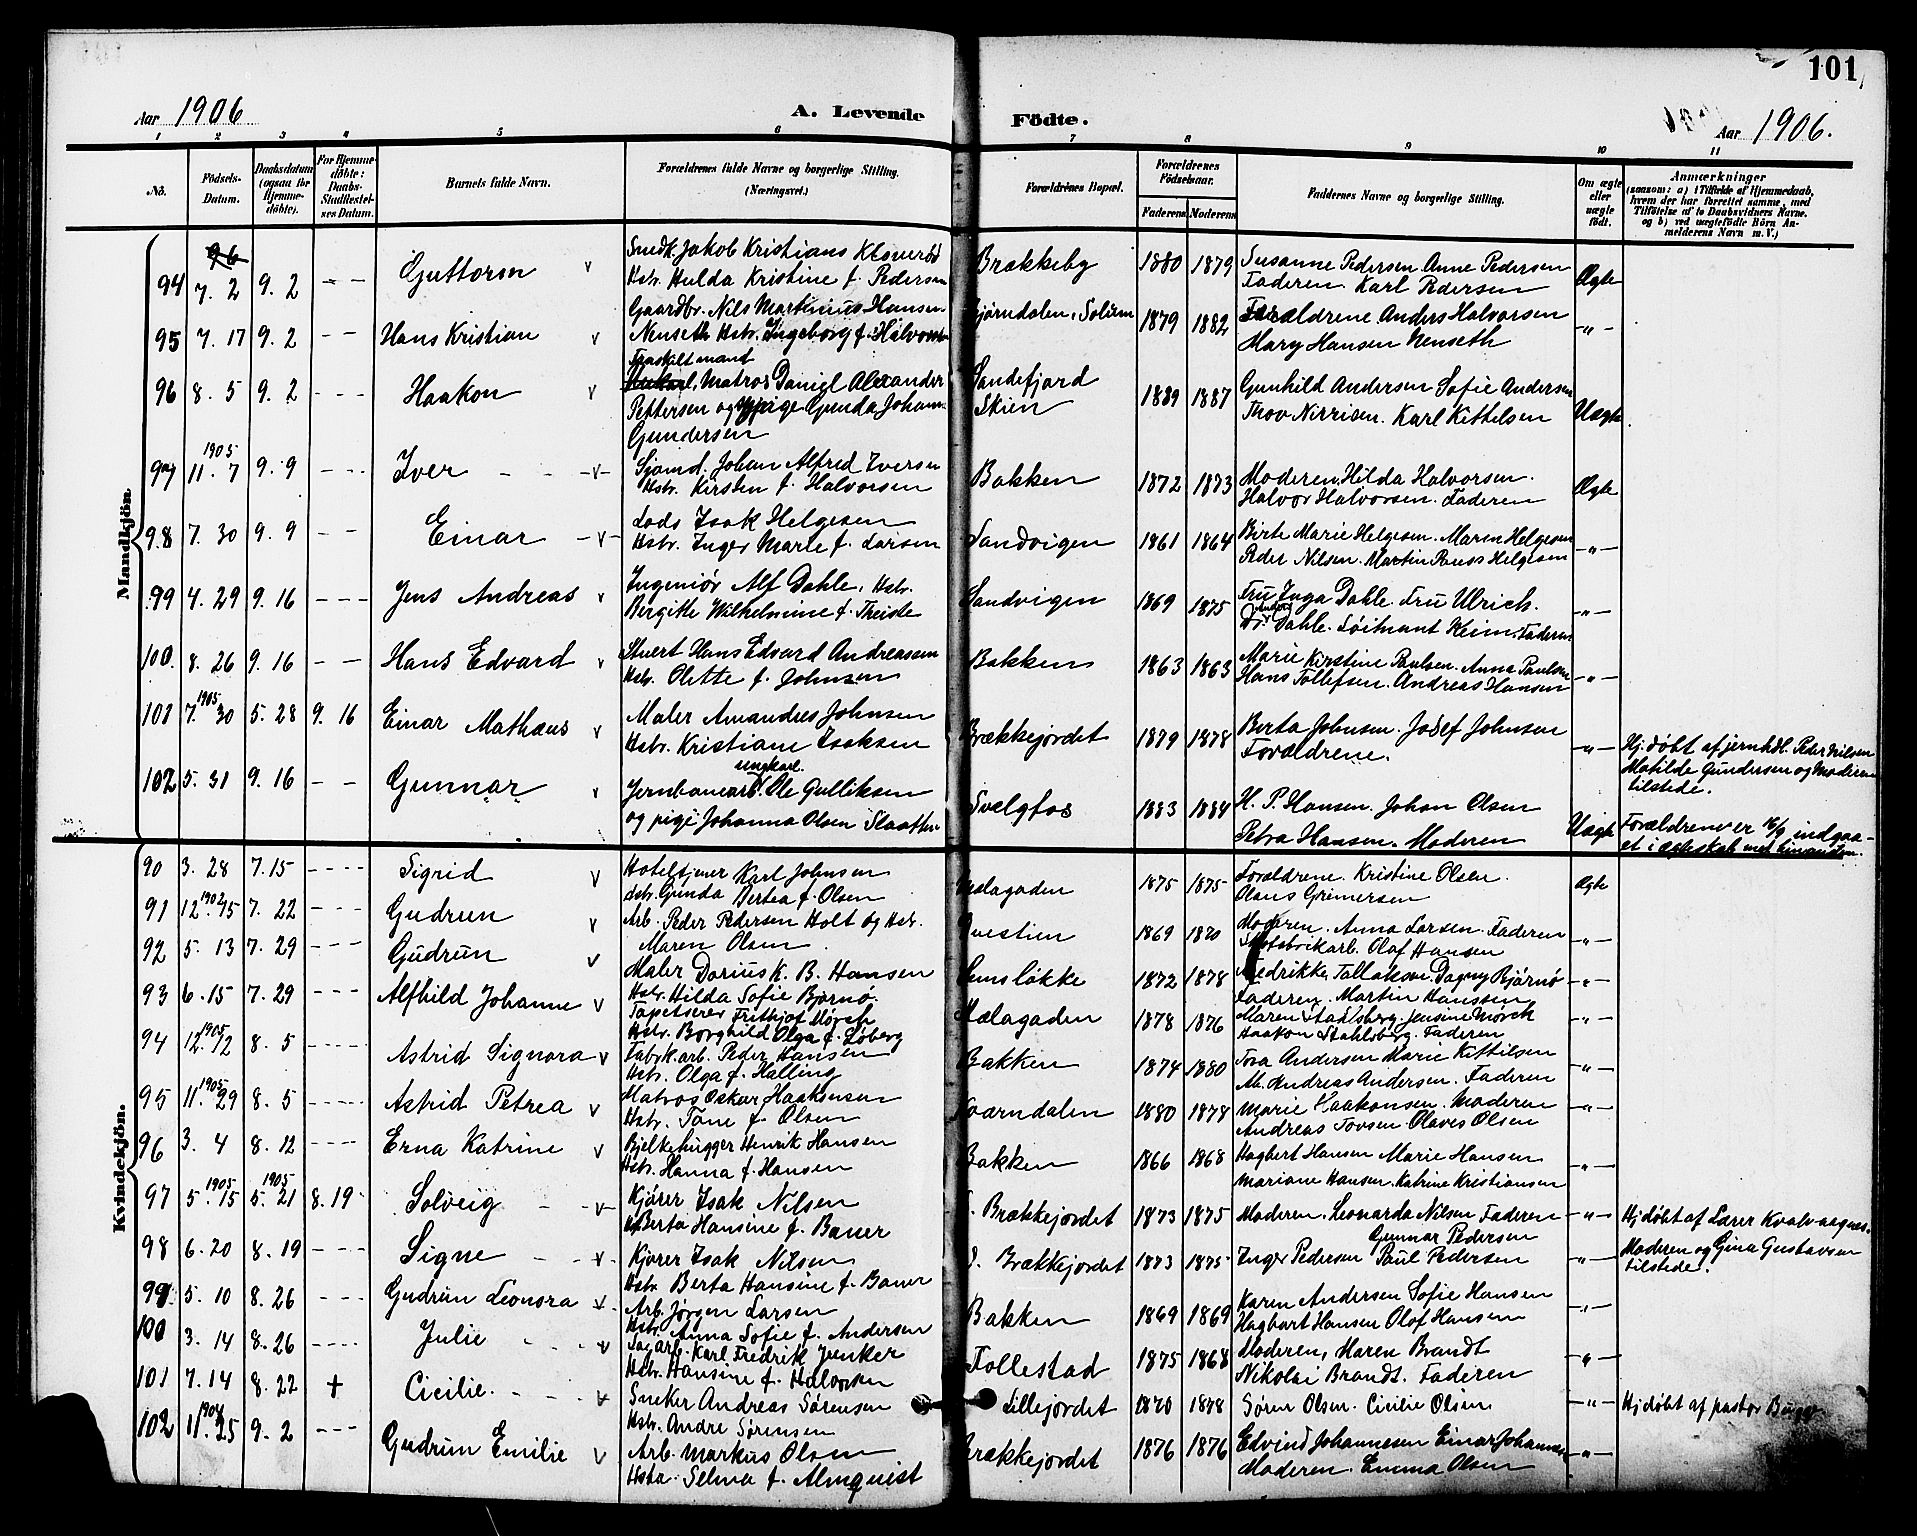 101
Aar 1906
A. Levende
Födte.
Aar 1906.
1 2 3 4 5 6 7 8 9 10 11
No.
Födsels-Datum.
Daabsdatum (ogsaa for Hjemme-döbte).
For Hjemme-döbte: Daabs-Stadfæstel-ses Datum.
Barnets fulde Navn.
Forældrenes fulde Navne og borgerlige Stilling.
(Næringsvei.)
Forældrenes Bopæl.
Forældrenes Födselsaar.
Faderens Moderens
Faddernes Navne og borgerlige Stilling.
Om ægte eller uægte födt.
Anmærkninger
(saasom: a) i Tilfælde af Hjemmedaab,
hvem der har forrettet samme, med
Tilföielse af to Daabsvidners Navne.
og b) ved uægtefödte Börn An-
melderens Navn m. V.)
Mandkjön
94 7. 2 9. 2 - - Guttorm v
Snedk. Jakob Kristians
Hstr. Hulda Kristine f. Pedersen
Brækkeby 1880 1879
Susanne Pedersen. Anne Pedersen
Faderen. Karl Pedersen
Ægte
95 7. 17 9. 2 - - Hans Kristian v
Gaardbr. Nils Martinius Hansen
Nenseth Hstr. Ingeborg f. Halvorsen
Bjørndalen, Solum 1879 1882
Forældrene. Anders Halvorsen
Mary Hansen Nenseth
-"-
96 8. 5 9. 2 - - - Haakon v
Fraskilt mand
Matros Daniel Alexander
Pettersen og pige Gunda Johan-
Gundersen
Sandefjord
Skien
1889 1887
Gunhild Andersen Sofie Andersen
Karl Kittelsen
Uægte
97 1905 11. 7 9. 9 - - - Iver - - -v-
Sjømd. Johan Alfred Iversen
Hstr. Kirsten f. Halvorsen
Bakken 1872 1873
Moderen. Hilda Halvorsen.
Halvor Halvorsen. Faderen
Ægte
98 7. 30 9. 9 - - Einar -v-
Lods Isak Helgesen
Hstr. Inger Marie f. Larsen
Sandvigen 1861 1864
Birte Marie Helgesen. Maren Helgesen
Peder Nilsen. Martin Helgesen
-"-
99 4. 29 9. 16 - - - Jens Andreas v
Ingeniør Alf Dahle. Hstr.
Birgitte Wilhelmine f. Theiste
Sandvigen 1869 1875
Fru Inga Dahle. Fru Ulrich.
Dr. Dahle. Løitnant Heim. Faderen
-"-
100. 8. 26 9. 16 - - Hans Edvard v
Stuert Hans Edvard Andreassen
Hstr. Olette f. Johnsen
Bakken 1863 1863
Marie Kirstine Paulsen. Anna Paulsen
Hans Tollefsen. Andreas Hansen
-"-
101 1905 7. 30 5. 28 9. 16 Einar Mathæus v
Maler Amandus Johnsen
Hstr. Kristiane Isaksen
Brækkejordet 1879 1878
Berta Johnsen. Josef Johnson
Forældrene.
-"-
Hj. døbt af jernhdl. Peter Nilsen
Matilde Gundersen og Moderen
tilstede.
102 5. 31 9. 16 - - Gunnar v
ungkarl.
Jernbanearb. Ole Gulliksen
og pige Johanna Olsen Slaatten
Svælgfos 1883 1884
H. P. Hansen. Johan Olsen
Petra Hansen. Moderen
Uægte
Forældrene er 16/9 indgaa-
et i ægteskab med hinanden.
Kvindekjön.
90 3. 28 7. 15 - - - - Sigrid v
Hoteltjener Karl Johnsen
Hstr. Gunda Bertea f. Olsen
Mælagaden 1875 1875
Forældrene. Kristine Olsen.
Olaus Grimersen
Ægte
91 1902 12. 15 7. 22 - - - Gudrun v
Arb. Peder Pedersen Holt og Hstr.
Maren Olsen.
1869 1870
Moderen. Anna Larsen. Faderen
Olaf Hansen
-"-
92 5. 13 7. 29 - - - Gudrun v
Maler Darius K. B. Hansen
Hstr. Hilda Sofie Bjørnø.
Lensløkke 1872 1878
Fredrikke Tallaksen Dagny Bjørnø
Faderen. Martin Hanssen
-"-
93 6. 15 7. 29 - - - Alfhild Johanne v
Tapetserer Frithjof Mørch
Hstr. Borghild Olga f. Løberg
Mælagaden 1878 1876
Maren Stahlsberg. Jensine Mørch
Haakon Stahlsberg. Faderen
-"-
94 1905 12. 12 8. 5 - - - - Astrid Signora v
Fabrikarb. Peder Hansen
Hstr. Olga f. Halling
Bakken 1874 1880
Tora Andersen Marie Kittilsen
M. Andreas Andersen. Faderen
-"-
95 1905 11. 29 8. 5 - - - - Astrid Petrea v
Matros Oskar Haakensen
Hstr. Tone f. Olsen
1880 1878
Marie Haakonsen. Moderen
Andreas Tovsen Olaves Olsen
-"-
96 3. 4 8. 12 - - - - Erna Katrine v
Bjelkehugger Henrik Hansen
Hstr. Hanna f. Hansen
Bakken 1866 1868
Hagbert Hansen Marie Hansen
Mariane Hansen. Katrine Kristiansen
-"-
97 1905 5. 15 1905 5. 21 8. 19 Solveig - -v-
Kjører Isak Nilsen
Berta Hansine f. Bauer
Brækkejordet 1873 1875
Moderen. Leonarda Nilsen Faderen
Gunnar Pedersen
-"-
Hj. døbt af Lærer Kvalvaagnes.
Moderen og Gina Gustavsen
tilstede.
98 6. 20 8. 19 - - - - Signe - - -v-
Kjører Isak Nilsen
Hstr. Berta Hansine f. Bauer
Brækkejordet 1873 1875
Inger Pedersen Paul Pedersen
-"-
99. 5. 10 8. 26 - - - Gudrun Leonora v
Arb. Jørgen Larsen
Hstr. Anna Sofie f. Andersen
Bakken 1869 1869
Karen Andersen Sofie Hansen
Hagbart Hansen Olaf Hansen
-"-
100 3. 14 8. 26 - - - Julie - - -v
Sagarb. Karl Fredrik Junker
Hstr. Hansine f. Halvorsen
Follestad 1875 1868
Moderen, Maren Brandt
Nikolai Brandt. Faderen
-"-
101 7. 14 8. 22 + Cicilie. - - - v
Sneker Andreas Sørensen
Hstr. Andre Sørensen
Lillejordet 1870 1878
Søren Olsen. Cicilie Olsen
-"-
Hj. døbt af pastor Bugge
102 1904 11. 25 9. 2 - - - Gudrun Emilie v
Arb. Markus Olsen
Hstr. Selma f. Almquist
Brækkejordet 1876 1876
Edvind Johannesen Einar Johannesen
Moderen. Emma Olsen
-"-